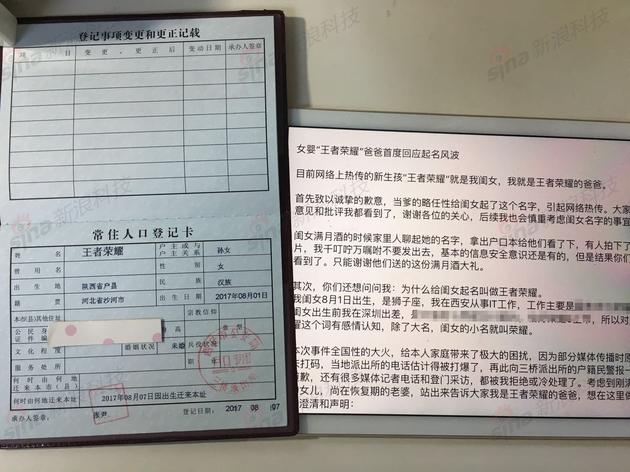 登记事项变更和更正记载
项 目 变更、更正后 变动日期 承办人签章
常住人口登记卡
姓名 王者荣耀 户主或与户主关系 孙女
曾用名 性别 女
出生地 陕西省户县 民族 汉族
籍贯 河北省沙河市 出生日期 2017年08月01日
本市(县)其他住址 宗教信仰
公民身份证件编号 身高
文化程度 婚姻状况 未婚 兵役状况
服务处所
何时由何地迁来本市(县)
何时由何地迁来本址 2017年08月07日因出生迁来本址
承办人签章 登记日期: 2017 08 07
女婴“王者荣耀”爸爸首度回应起名风波
目前网络上热传的新生孩“王者荣耀”就是我闺女，我就是王者荣耀的爸爸。
首先致以诚挚的歉意，当爹的略任性给闺女起了这个名字，引起网络热传。大家
意见和批评我都看到了，谢谢各位的关心，后续我也会慎重考虑闺女名字的事宜
闺女满月酒的时候家里人聊起她的名字，拿出户口本给他们看了下，有人拍了
片，我千叮咛万嘱咐不要发出去，基本的信息安全意识还是有的，但是结果你们
看到了。只能谢谢他们送的这份满月酒大礼。
其次，你们还想问问我：为什么给闺女起名叫做王者荣耀。
我闺女8月1日出生，是狮子座，我在西安从事IT工作，工作主要是
闺女出生前我在深圳出差，
所以对
耀这个词有感情认知，除了大名，闺女的小名就叫荣耀。
本次事件全国性的大火，给本人家庭带来了极大的困扰，因为部分媒体传播时原
未打码，当地派出所的电话估计得被打爆了，再此向三桥派出所的户籍民警报一
歉，还有很多媒体记者电话和登门采访，都被我拒绝或冷处理了。考虑到刚满
女儿，尚在恢复期的老婆，站出来告诉大家我是王者荣耀的爸爸，想在这里做
澄清和声明：
sina新浪科技